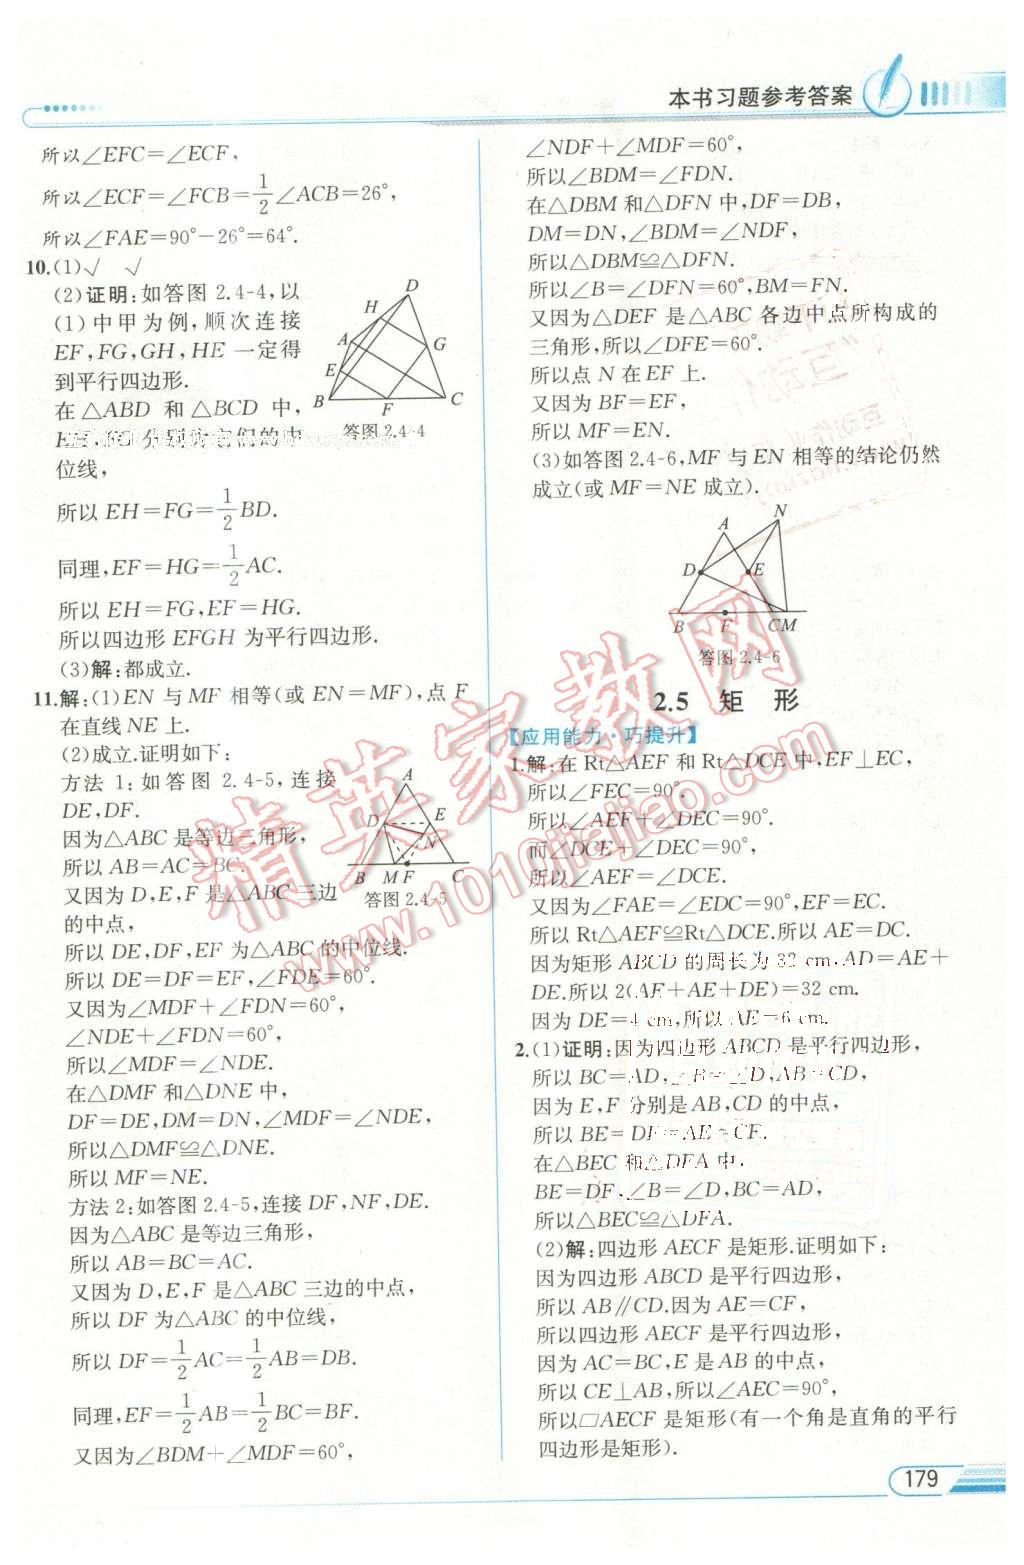 本书习题参考答案
所以∠EFC=∠ECF,
所以∠ECF=∠FCB=1/2∠ACB=26°,
所以∠FAE=90°-26°=64°.
10.(1)√ √
(2)证明:如答图 2.4-4,以
(1)中甲为例,顺次连接
EF,FG,GH,HE 一定得
到平行四边形.
在△ABD 和△BCD 中,
位线,
D
H
A
G
E
B
F
C
答图 2.4-4
所以 EH=FG=1/2BD.
同理,EF=HG=1/2AC.
所以 EH=FG,EF=HG.
所以四边形 EFGH 为平行四边形.
(3)解:都成立.
11.解:(1)EN 与 MF 相等(或 EN=MF),点 F
在直线 NE 上.
(2)成立.证明如下:
方法 1:如答图 2.4-5,连接
DE,DF.
因为△ABC 是等边三角形,
所以 AB=AC=BC.
又因为 D,E,F 是△ABC 三边
的中点,
A
D
E
N
B
M F
C
答图 2.4-5
所以 DE,DF,EF 为△ABC 的中位线.
所以 DE=DF=EF,∠FDE=60°.
又因为∠MDF+∠FDN=60°,
∠NDE+∠FDN=60°,
所以∠MDF=∠NDE.
在△DMF 和△DNE 中,
DF=DE,DM=DN,∠MDF=∠NDE,
所以△DMF≌△DNE.
所以 MF=NE.
方法 2:如答图 2.4-5,连接 DF,NF,DE.
因为△ABC 是等边三角形,
所以 AB=BC=AC.
又因为 D,E,F 是△ABC 三边的中点,
所以 DF 为△ABC 的中位线,
所以 DF=1/2AC=1/2AB=DB.
同理,EF=1/2AB=1/2BC=BF.
又因为∠BDM+∠MDF=60°,
∠NDF+∠MDF=60°,
所以∠BDM=∠FDN.
在△DBM 和△DFN 中,DF=DB,
DM=DN,∠BDM=∠NDF,
所以△DBM≌△DFN.
所以∠B=∠DFN=60°,BM=FN.
又因为△DEF 是△ABC 各边中点所构成的
三角形,所以∠DFE=60°.
所以点 N 在 EF 上.
又因为 BF=EF,
所以 MF=EN.
(3)如答图 2.4-6,MF 与 EN 相等的结论仍然
成立(或 MF=NE 成立).
N
A
D
E
B
F
CM
答图 2.4-6
2.5 矩 形
【应用能力·巧提升】
1.解:在 Rt△AEF 和 Rt△DCE 中,EF⊥EC,
所以∠FEC=90°.
所以∠AEF+∠DEC=90°.
而∠DCE+∠DEC=90°,
所以∠AEF=∠DCE.
又因为∠FAE=∠EDC=90°,EF=EC.
所以 Rt△AEF≌Rt△DCE.所以 AE=DC.
因为矩形 ABCD 的周长为 32 cm,AD=AE+
DE.所以 2(AE+AE+DE)=32 cm.
因为 DE=4 cm,所以 AE=6 cm.
2.(1)证明:因为四边形 ABCD 是平行四边形,
所以 BC=AD,∠B=∠D,AB=CD,
因为 E,F 分别是 AB,CD 的中点,
所以 BE=DF=AE=CF.
在△BEC 和△DFA 中,
BE=DF,∠B=∠D,BC=AD,
所以△BEC≌△DFA.
(2)解:四边形 AECF 是矩形.证明如下:
因为四边形 ABCD 是平行四边形,
所以 AB∥CD.因为 AE=CF,
所以四边形 AECF 是平行四边形,
因为 AC=BC,E 是 AB 的中点,
所以 CE⊥AB,所以∠AEC=90°,
所以□AECF 是矩形(有一个角是直角的平行
四边形是矩形).
精英家教网
www.1010jiajiao.com
179